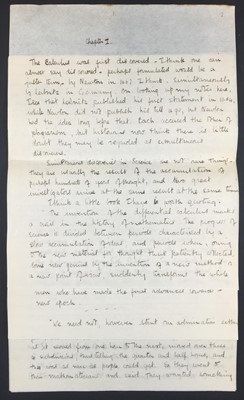 Chapter I.
The Calculus was first discovered – I think one can
almost say discovered – perhaps formulated would be a
better term, by Newton in 1667 I think. Simultaneously
by Leibnitz in Germany on looking up my notes here,
I see that Leibnitz published his first statement in 1684,
while Newton did not publish his till 1687, but Newton
had the idea long before that. Each accused the other of
plagiarism, but historians now think there is little
doubt they may be regarded as simultaneous
discoveries.
Simultaneous discoveries in Science are not rare things.
They are usually the result of the accumulation of
perhaps hundreds of years of thought, and two great
investigators arrive at the same result at the same time
I think a little book I have is worth quoting:-
"The invention of the differential calculus marks
a crisis in the history of mathematics. The progress of
science is divided between periods characterized by a
slow accumulation of ideas and periods when, owing
to the new material for thought thus patiently collected
some new genius by the invention of a new method or
a new point of view, suddenly transforms the whole
men who have made the final advance
new epoch.
"We need not, however, stint our admiration
as it would from one hour to the next,
subdivisions, thus telling the quarter and half hours, and
was as near as people could get. So they went to
their mathematicians and said they wanted something